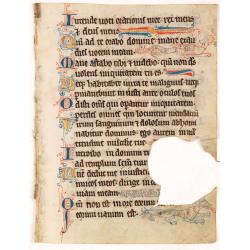 Intende voci orationis mee rex meus
et deus meus
Qm ad te orabo domine mane exau
dies vocem meam
Mane astabo tibi et videbo qm non ds
volens iniquitatem tu es
Neque habitabit iuxta te malignus neqz
permanebunt iniusti ante oculos tuos
Odisti oms qui operantur iniquitatem
perdes omnes qui locuntur mendacium
virum sanguinum et dolosum abhomi
nabitur dominus ego autem in mul
titudine mise
Introibo in domum
ad templum sctm tuum
Dne deduc me in iustic
imicos meos dirige in
viam meam
Qm non est in ore eorum
eorum vanum est